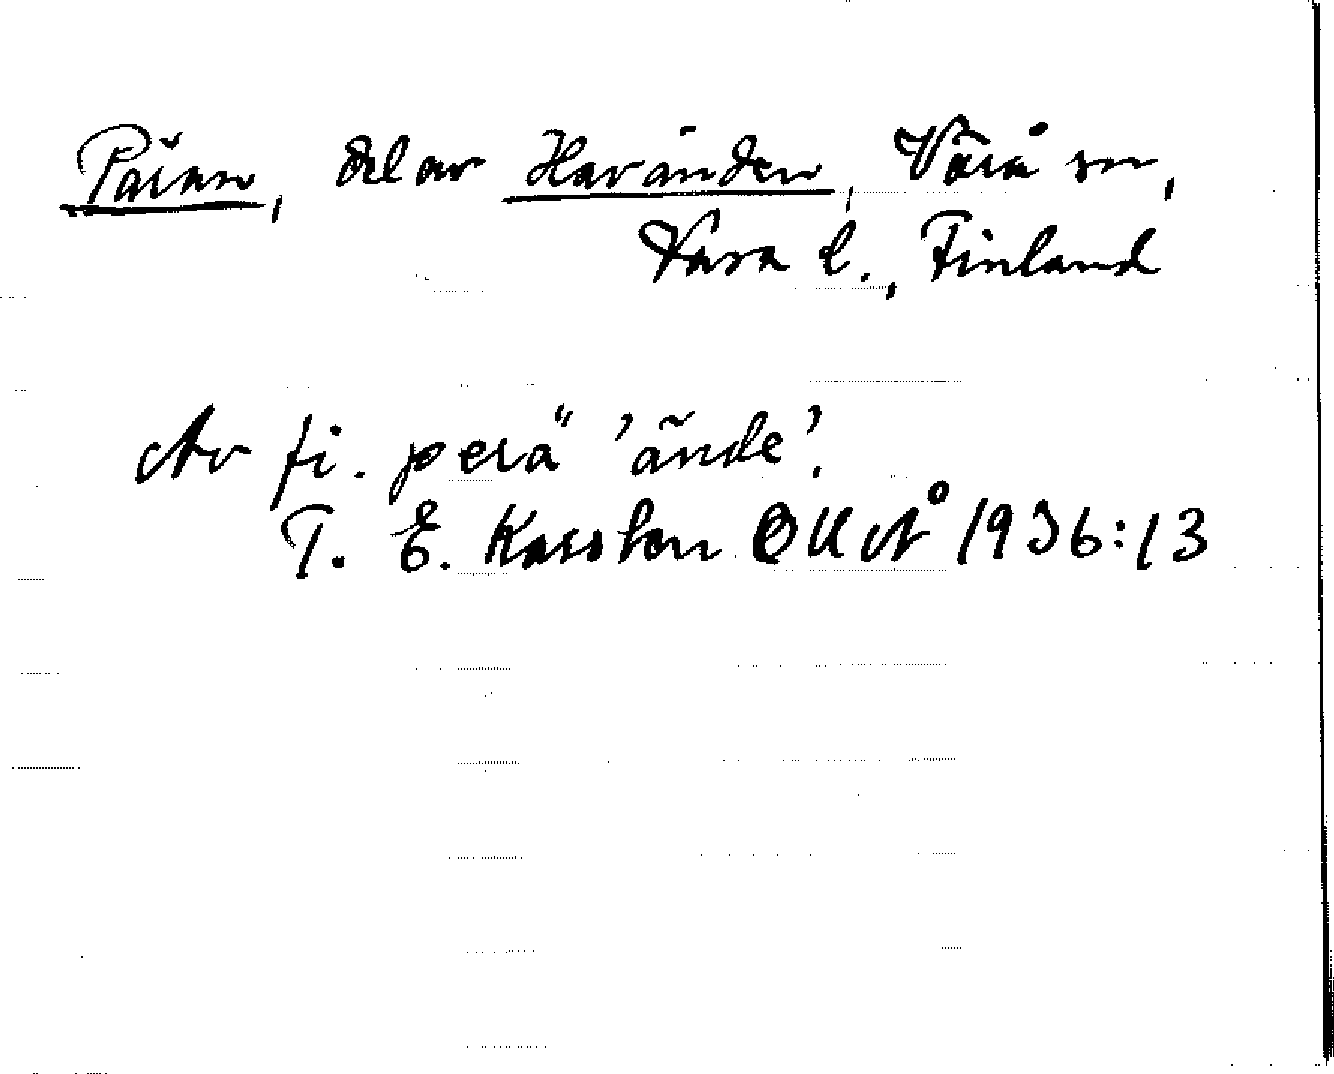 Päran, del av Haränden, Vörå sn,
Vasa l., Finland
Av fi. perä 'ände'.
T. E. Karsten 1936:13